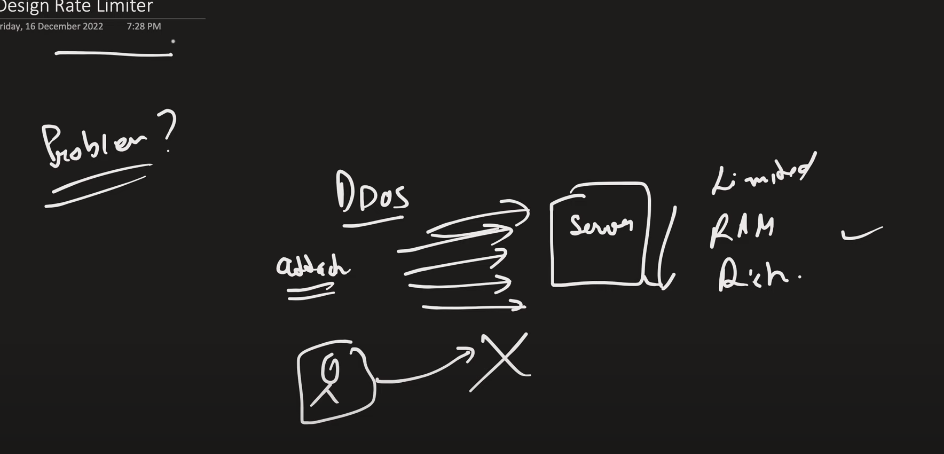 Design Rate Limiter
riday, 16 December 2022 7:28 PM
Problem?
DDOS
attack
Server
Limited
RAM
Disk.